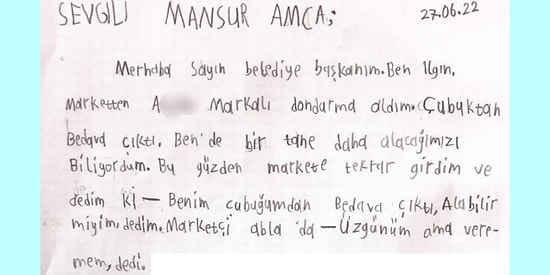 SEVGİLİ MANSUR AMCA;
27.06.22
Merhaba Sayın belediye başkanım. Ben Ilgın,
Marketten A Markalı dondurma aldım. Çubuktan
Bedava çıktı. Ben'de bir tane daha alacağımızı
Biliyordum. Bu yüzden markete tekrar girdim ve
dedim ki — Benim çubuğumdan Bedava çıktı, Alabilir
miyim, dedim. Marketçi abla 'da — Üzgünüm ama vere-
mem, dedi.